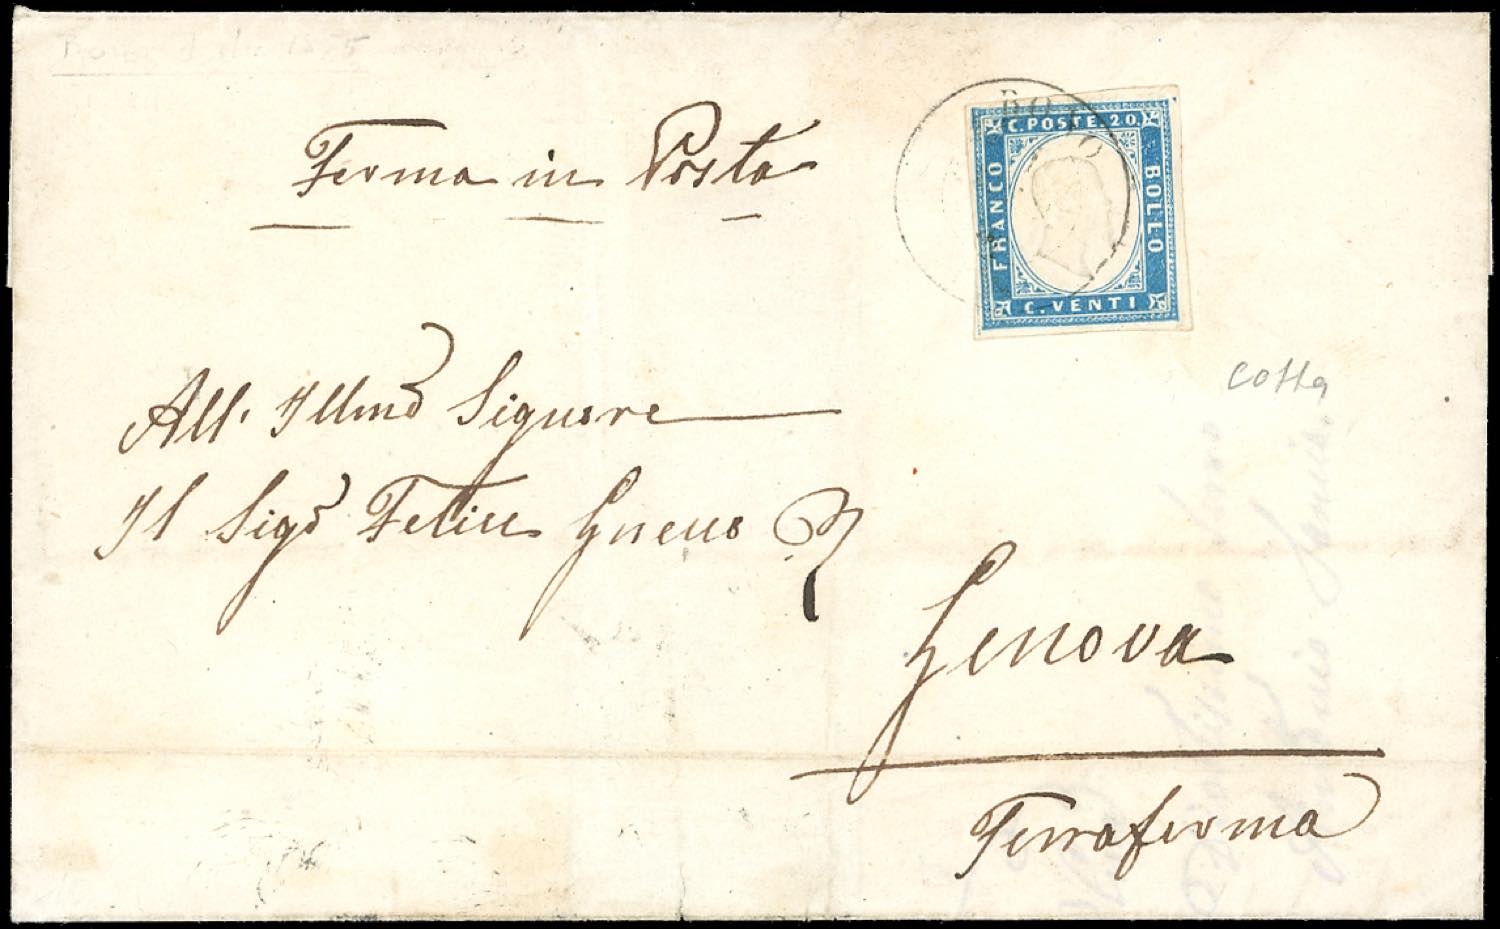 Ferma in Posta
C. POSTE. 20.
FRANCO
BOLLO
C. VENTI
cotta
All' Illmo Signore
Il Sigr Felice
Genova
Terraferma